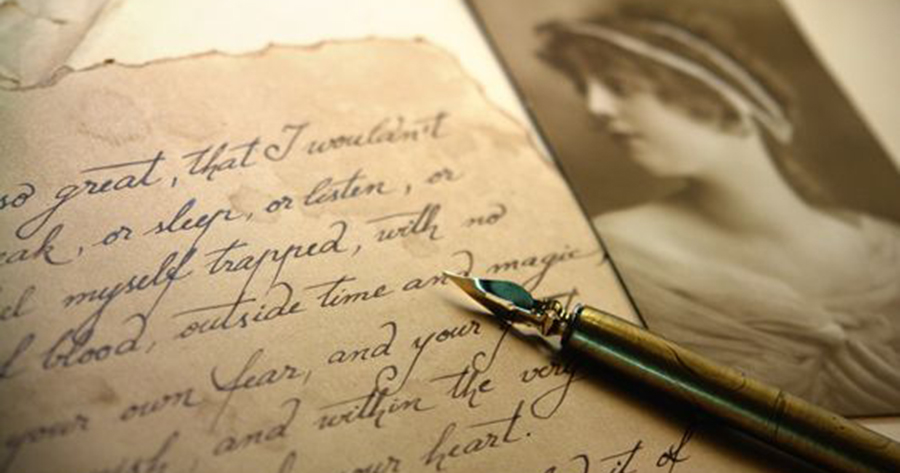 so great, that I wouldn't
or sleep, or listen, or
myself trapped, with no
blood, outside time and magic,
your own fear, and your
and within the very
your heart.
it of